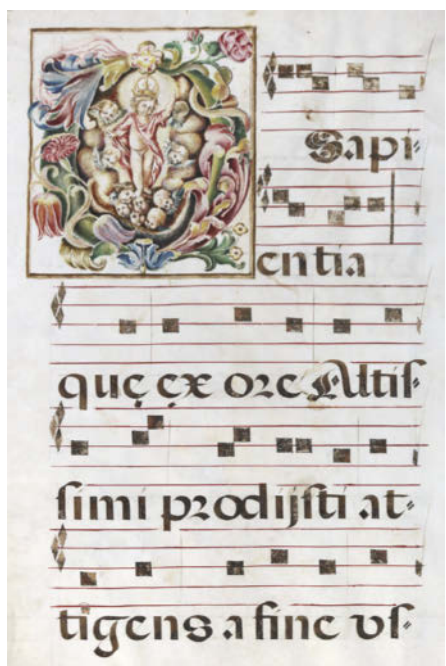 O
Sapi-
entia
quę ęx ore Altis-
simi prodijsti at-
tigens a fine vs-